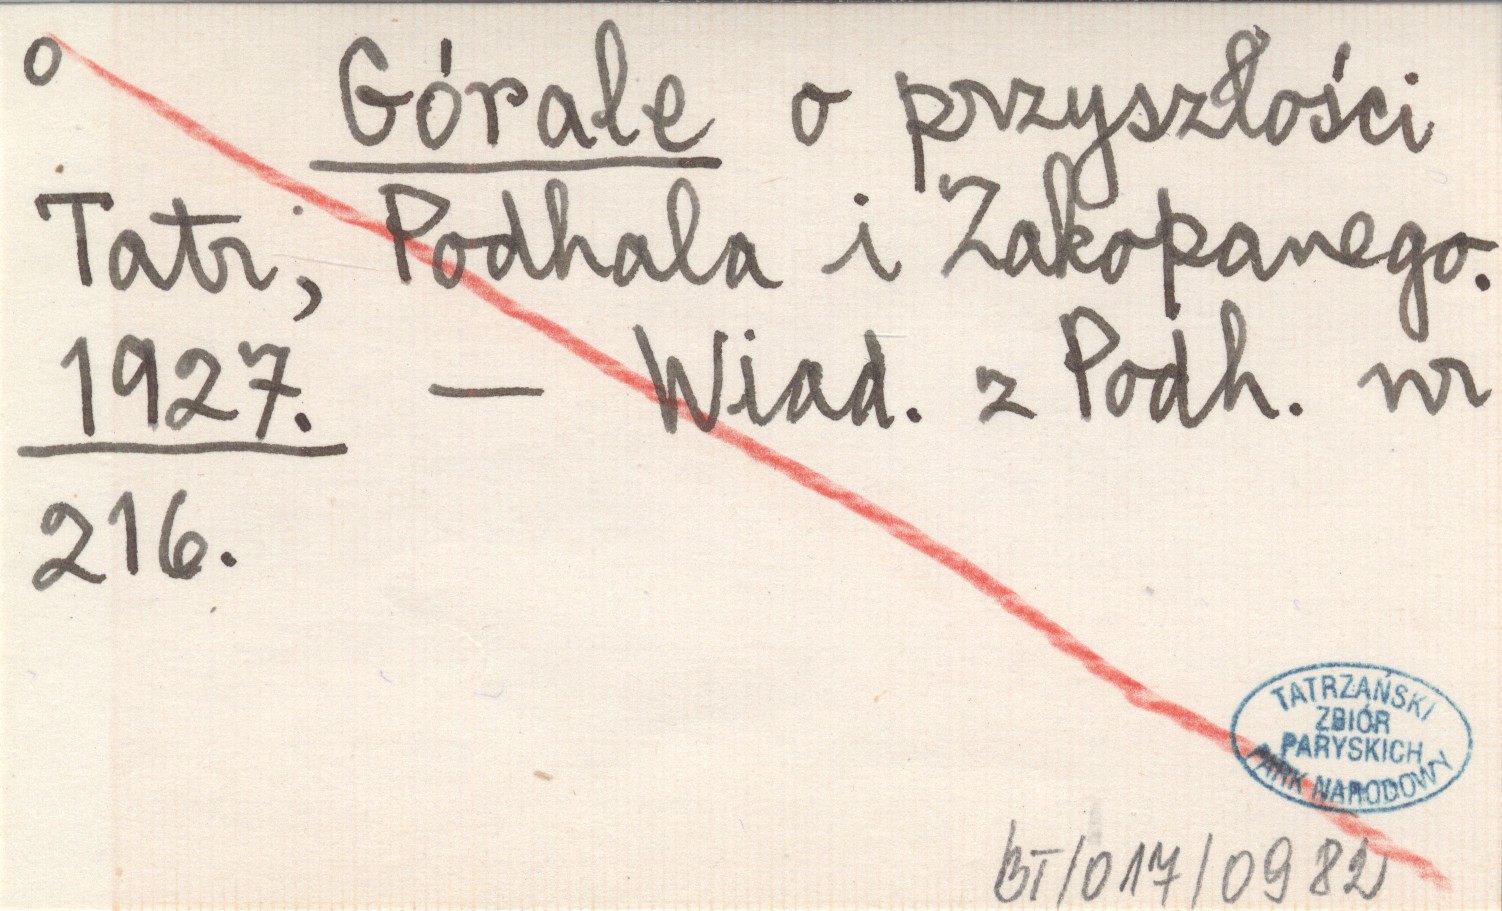 o Górale o przyszłości
Tatr, Podhala i Zakopanego.
1927. — Wiad. z Podh. nr
216.
TATRZAŃSKI
ZBIÓR
PARYSKICH
PARK NARODOWY
BT/017/0982